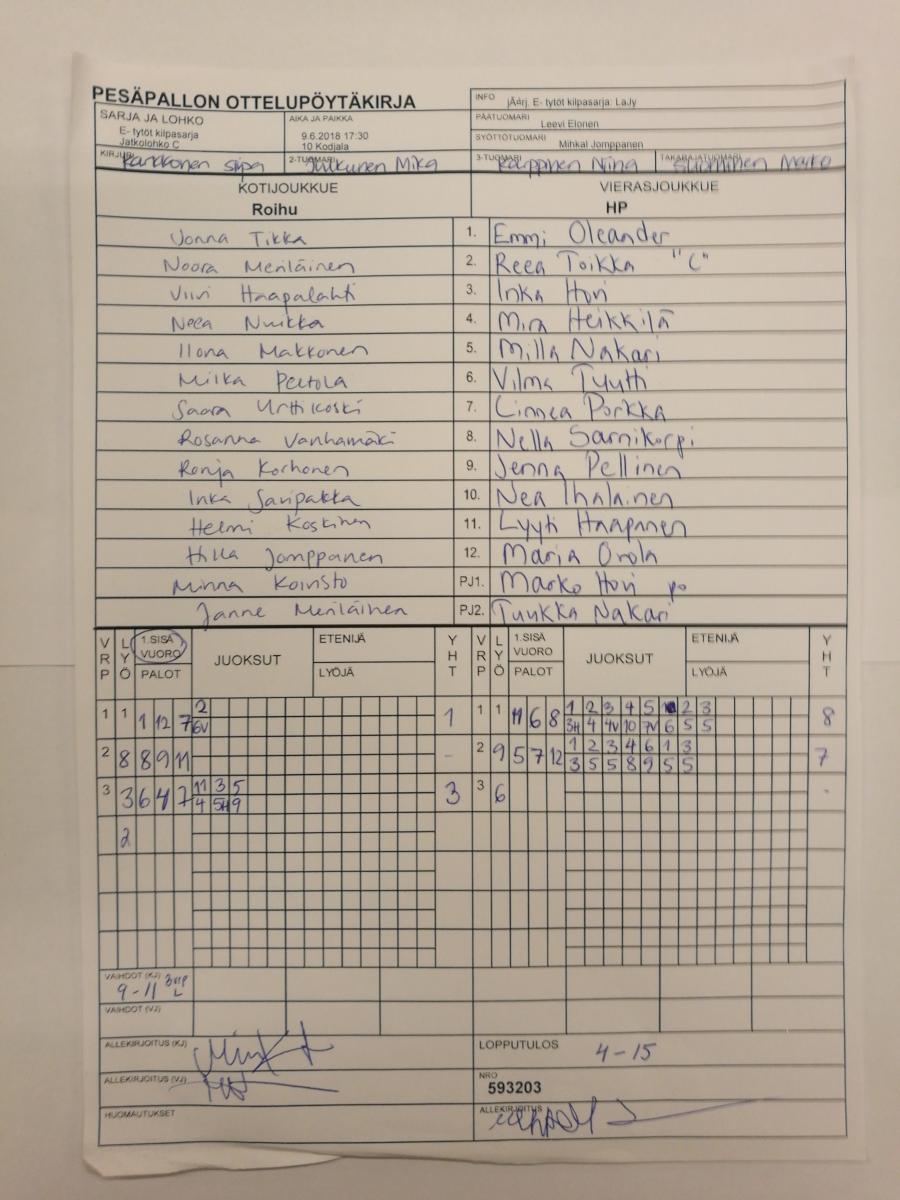 PESÄPALLON OTTELUPÖYTÄKIRJA
INFO jÄärj. E- tytöt kilpasarja: LaJy
SARJA JA LOHKO
E- tytöt kilpasarja
Jatkolohko C
AIKA JA PAIKKA
9.6.2018 17:30
10 Kodjala
PÄÄTUOMARI
Leevi Elonen
SYÖTTÖTUOMARI
Mihkal Jomppanen
KIRJURI Karkkonen
2-TUOMARI Julkunen Mika
3-TUOMARI Kauppinen Niina
TAKARAJATUOMARI Suominen Marko
KOTIJOUKKUE VIERASJOUKKUE
Roihu HP
Jonna Tikka 1. Emmi Oleander
Noora Meriläinen 2. Reea Toikka "C"
Viivi Haapalahti 3. Inka Hovi
Neea Nuikka 4. Mira Heikkilä
Ilona Makkonen 5. Milla Nakari
Milka Peltola 6. Vilma Tyutti
Saara Urttikoski 7. Linnea Porkka
Rosanna Vanhamäki 8. Nella Sarnikorpi
Ronja Korhonen 9. Jenna Pellinen
Inka Saripakka 10. Nea Ihalainen
Helmi Koskinen 11. Lyyti Haapanen
Hilla Jomppanen 12. Maria Orola
Minna Koivisto PJ1. Marko Hovi po
Janne Meriläinen PJ2. Tuukka Nakari
VRP LYÖ 1.SISÄ VUORO PALOT JUOKSUT ETENIJÄ LYÖJÄ YHT VRP LYÖ 1.SISÄ VUORO PALOT JUOKSUT ETENIJÄ LYÖJÄ YHT
1 1 1 12 7 2 1 1 1 11 6 8 1 2 3 4 5 2 3 8
6V 3H 4 4V 10 7V 6 5 5
2 8 8 9 11 - 2 9 5 7 12 1 2 3 4 6 1 3 7
3 5 5 8 9 5 5
3 3 6 4 7 11 3 5 3 3 6 -
4 5H 9
2
VAIHDOT (KJ)
9-11 3vrp L
VAIHDOT (VJ)
ALLEKIRJOITUS (KJ)
LOPPUTULOS 4-15
ALLEKIRJOITUS (VJ)
NRO
593203
HUOMAUTUKSET
ALLEKIRJOITUS